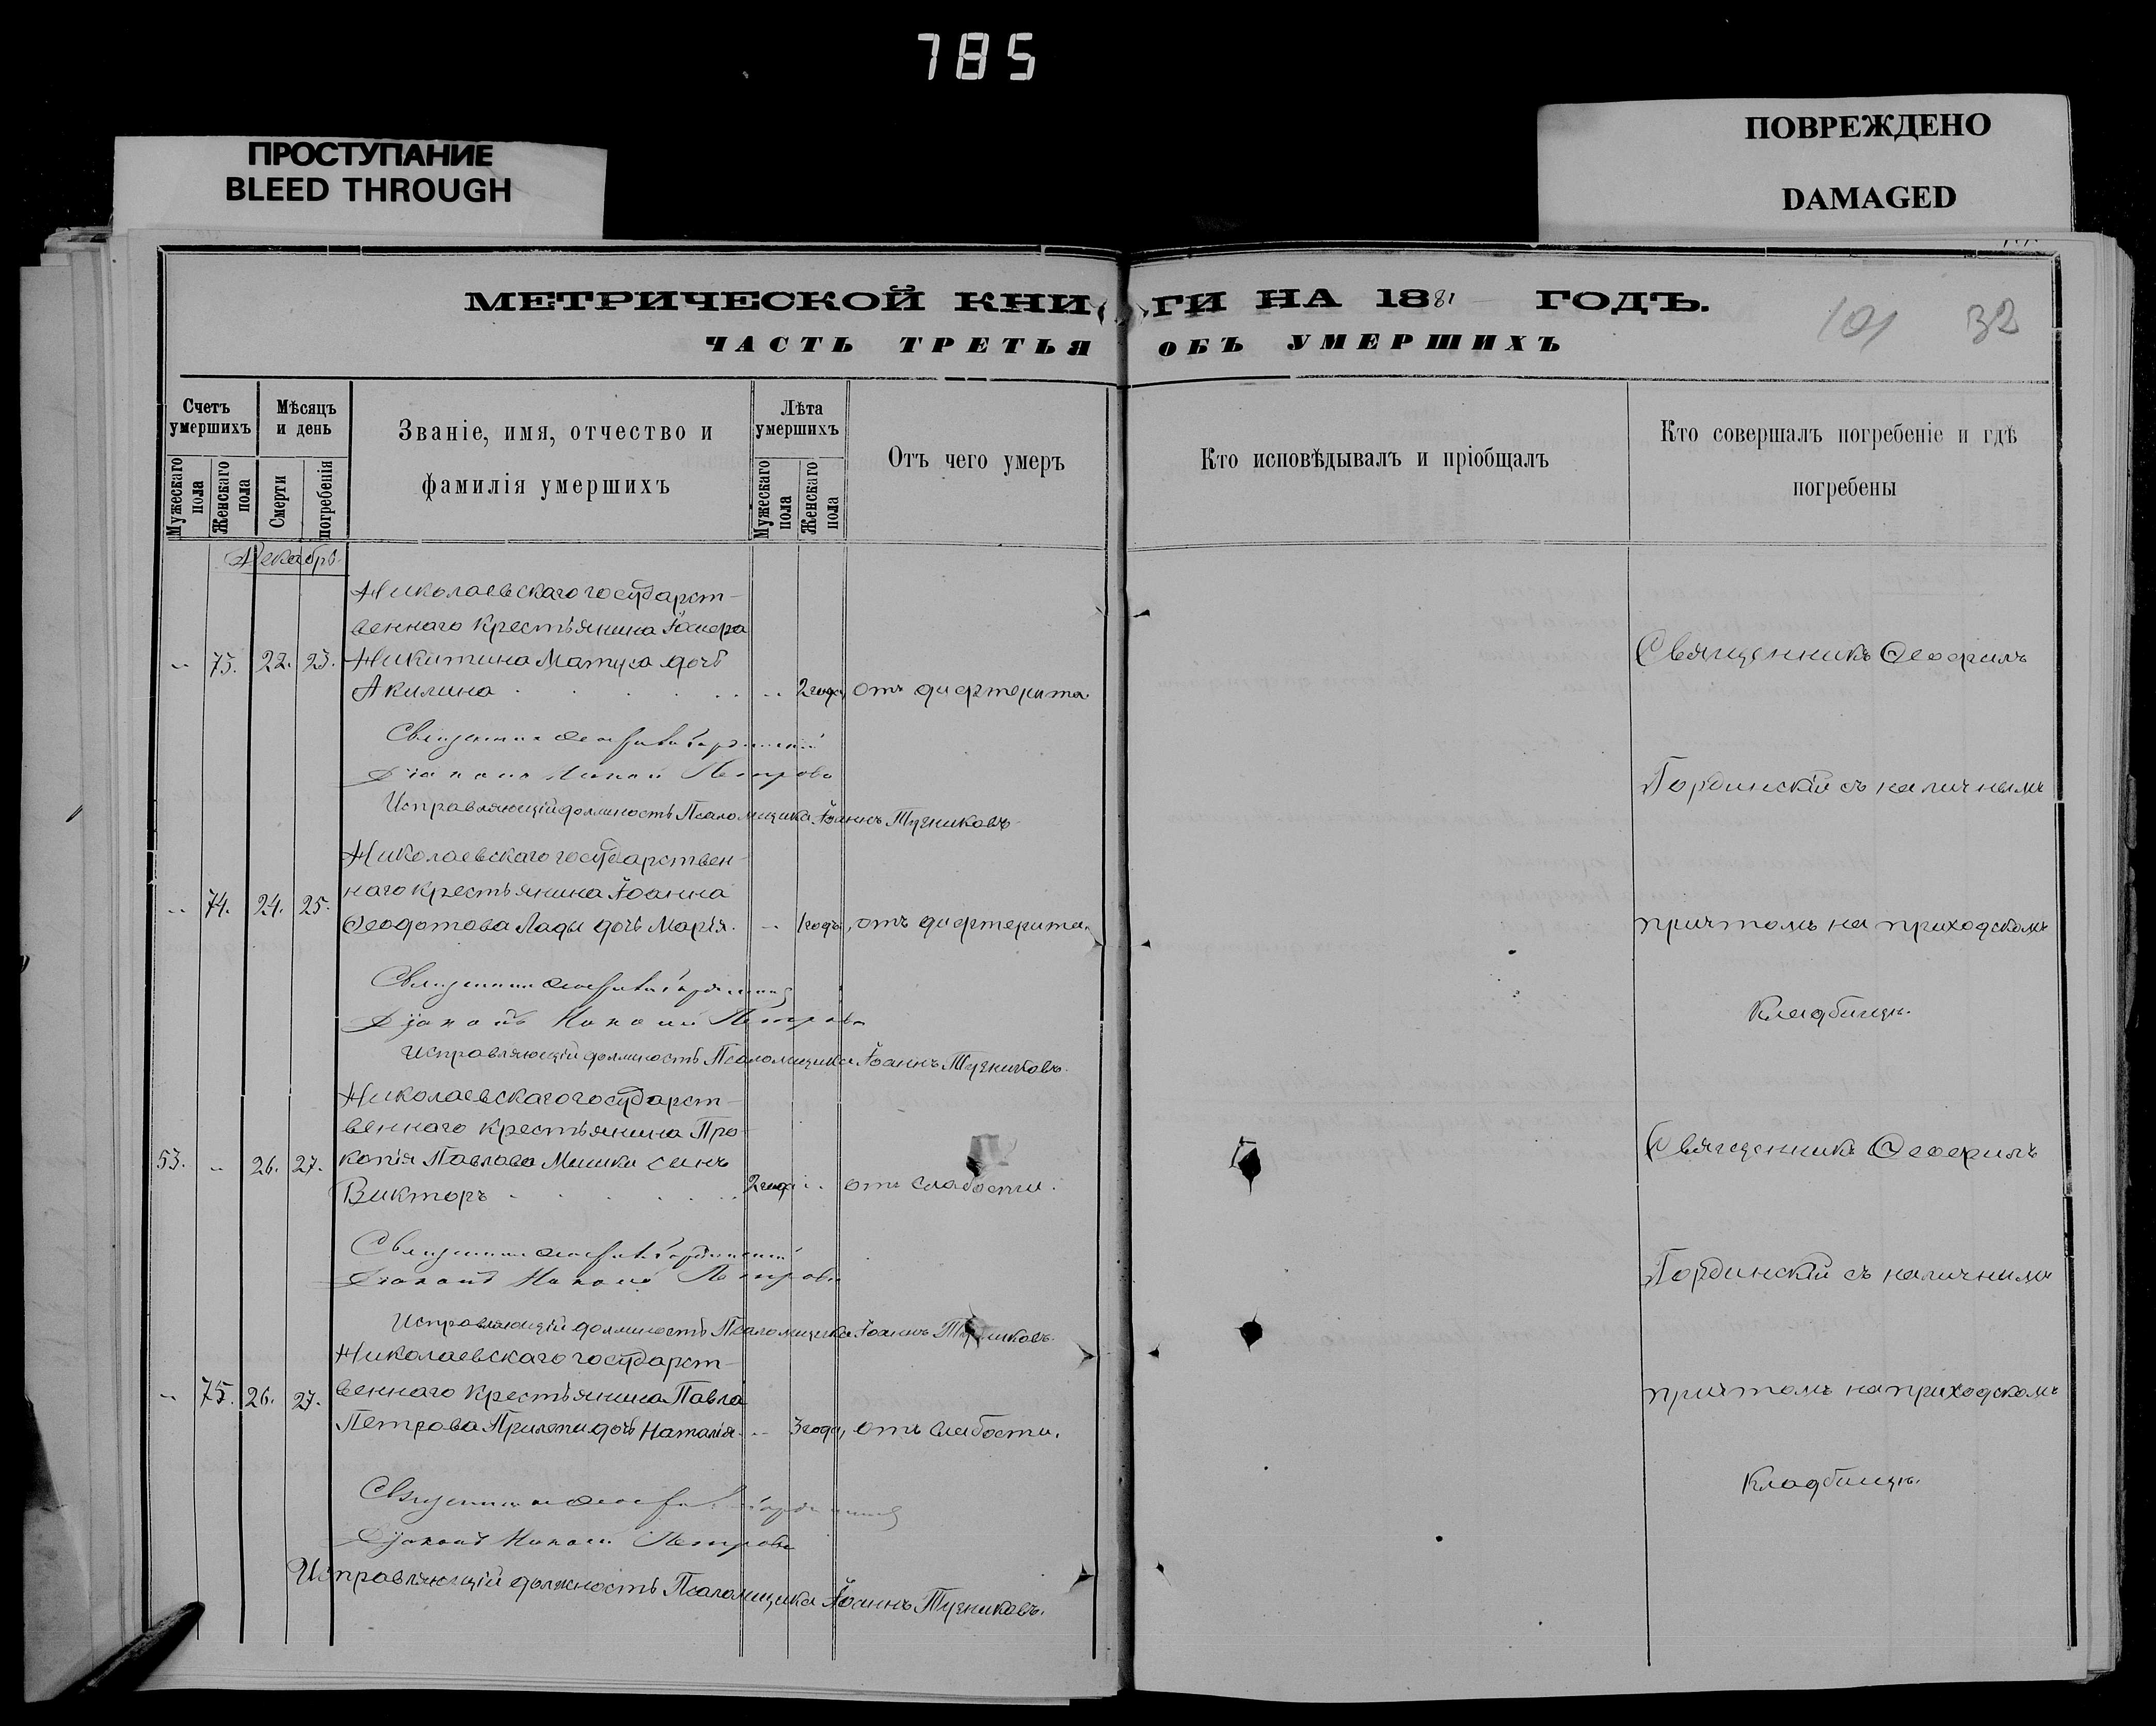 785
ПРОСТУПАНИЕ
BLEED THROUGH
ПОВРЕЖДЕНО
DAMAGED
МЕТРИЧЕСКОЙ КНИГИ НА 1881 ГОДЪ.
ЧАСТЬ ТРЕТЬЯ ОБЪ УМЕРШИХЪ
101 32
Счетъ умершихъ
Мужескаго пола
Женскаго пола
Мѣсяцъ и день
Смерти
погребенія
Званіе, имя, отчество и
фамилія умершихъ
Лѣта умершихъ
Мужескаго пола
Женскаго пола
Отъ чего умеръ
Кто исповѣдывалъ и пріобщалъ
Кто совершалъ погребеніе и гдѣ
погребены
Декабрь
Николаевскаго государст-
веннаго крестьянина
73. 22. 23. Никитина дочь
Акилина 2 года, отъ дифтерита.
Священникъ Ѳеофилъ Гординскій
Діаконъ Петровъ
Исправляющій должность Псаломщика Іоаннъ Тучниковъ.
Николаевскаго государствен-
наго крестьянина Іоанна
74. 24. 25. Ѳеодотова Лады дочь Марія. 1 годъ, отъ дифтерита.
Священникъ Ѳеофилъ Гординскій
Діаконъ Петровъ
Исправляющій должность Псаломщика Іоаннъ Тучниковъ.
Николаевскаго государст-
веннаго крестьянина Про-
53. 26. 27. копія Павлова Мишки сынъ
Викторъ 2 года отъ слабости.
Священникъ Ѳеофилъ Гординскій
Діаконъ Петровъ
Исправляющій должность Псаломщика Іоаннъ Тучниковъ.
Николаевскаго государст-
75. 26. 27. веннаго крестьянина Павла
Петрова Прилепи дочь Наталія. 3 года, отъ слабости.
Священникъ Ѳеофилъ Гординскій
Діаконъ Петровъ
Исправляющій должность Псаломщика Іоаннъ Тучниковъ.
Священникъ Ѳеофилъ
Гординскій съ наличнымъ
причтомъ на приходскомъ
кладбищѣ.
Священникъ Ѳеофилъ
Гординскій съ наличнымъ
причтомъ на приходскомъ
кладбищѣ.